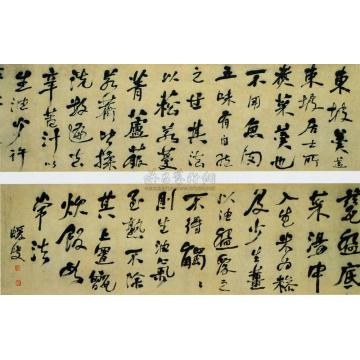 東坡羹蓋
東坡居士所
煮菜羹也
不用魚肉
五味有自然
之甘其法
以菘若蔓
菁蘆菔
若薺揉
洗數過去
辛苦汁以
生油少許
底
菜湯中
入生米為糝
及少生薑
以油盌覆之
不得觸觸
則生油氣
至熟不除
其上置甑
炊飯如
常法